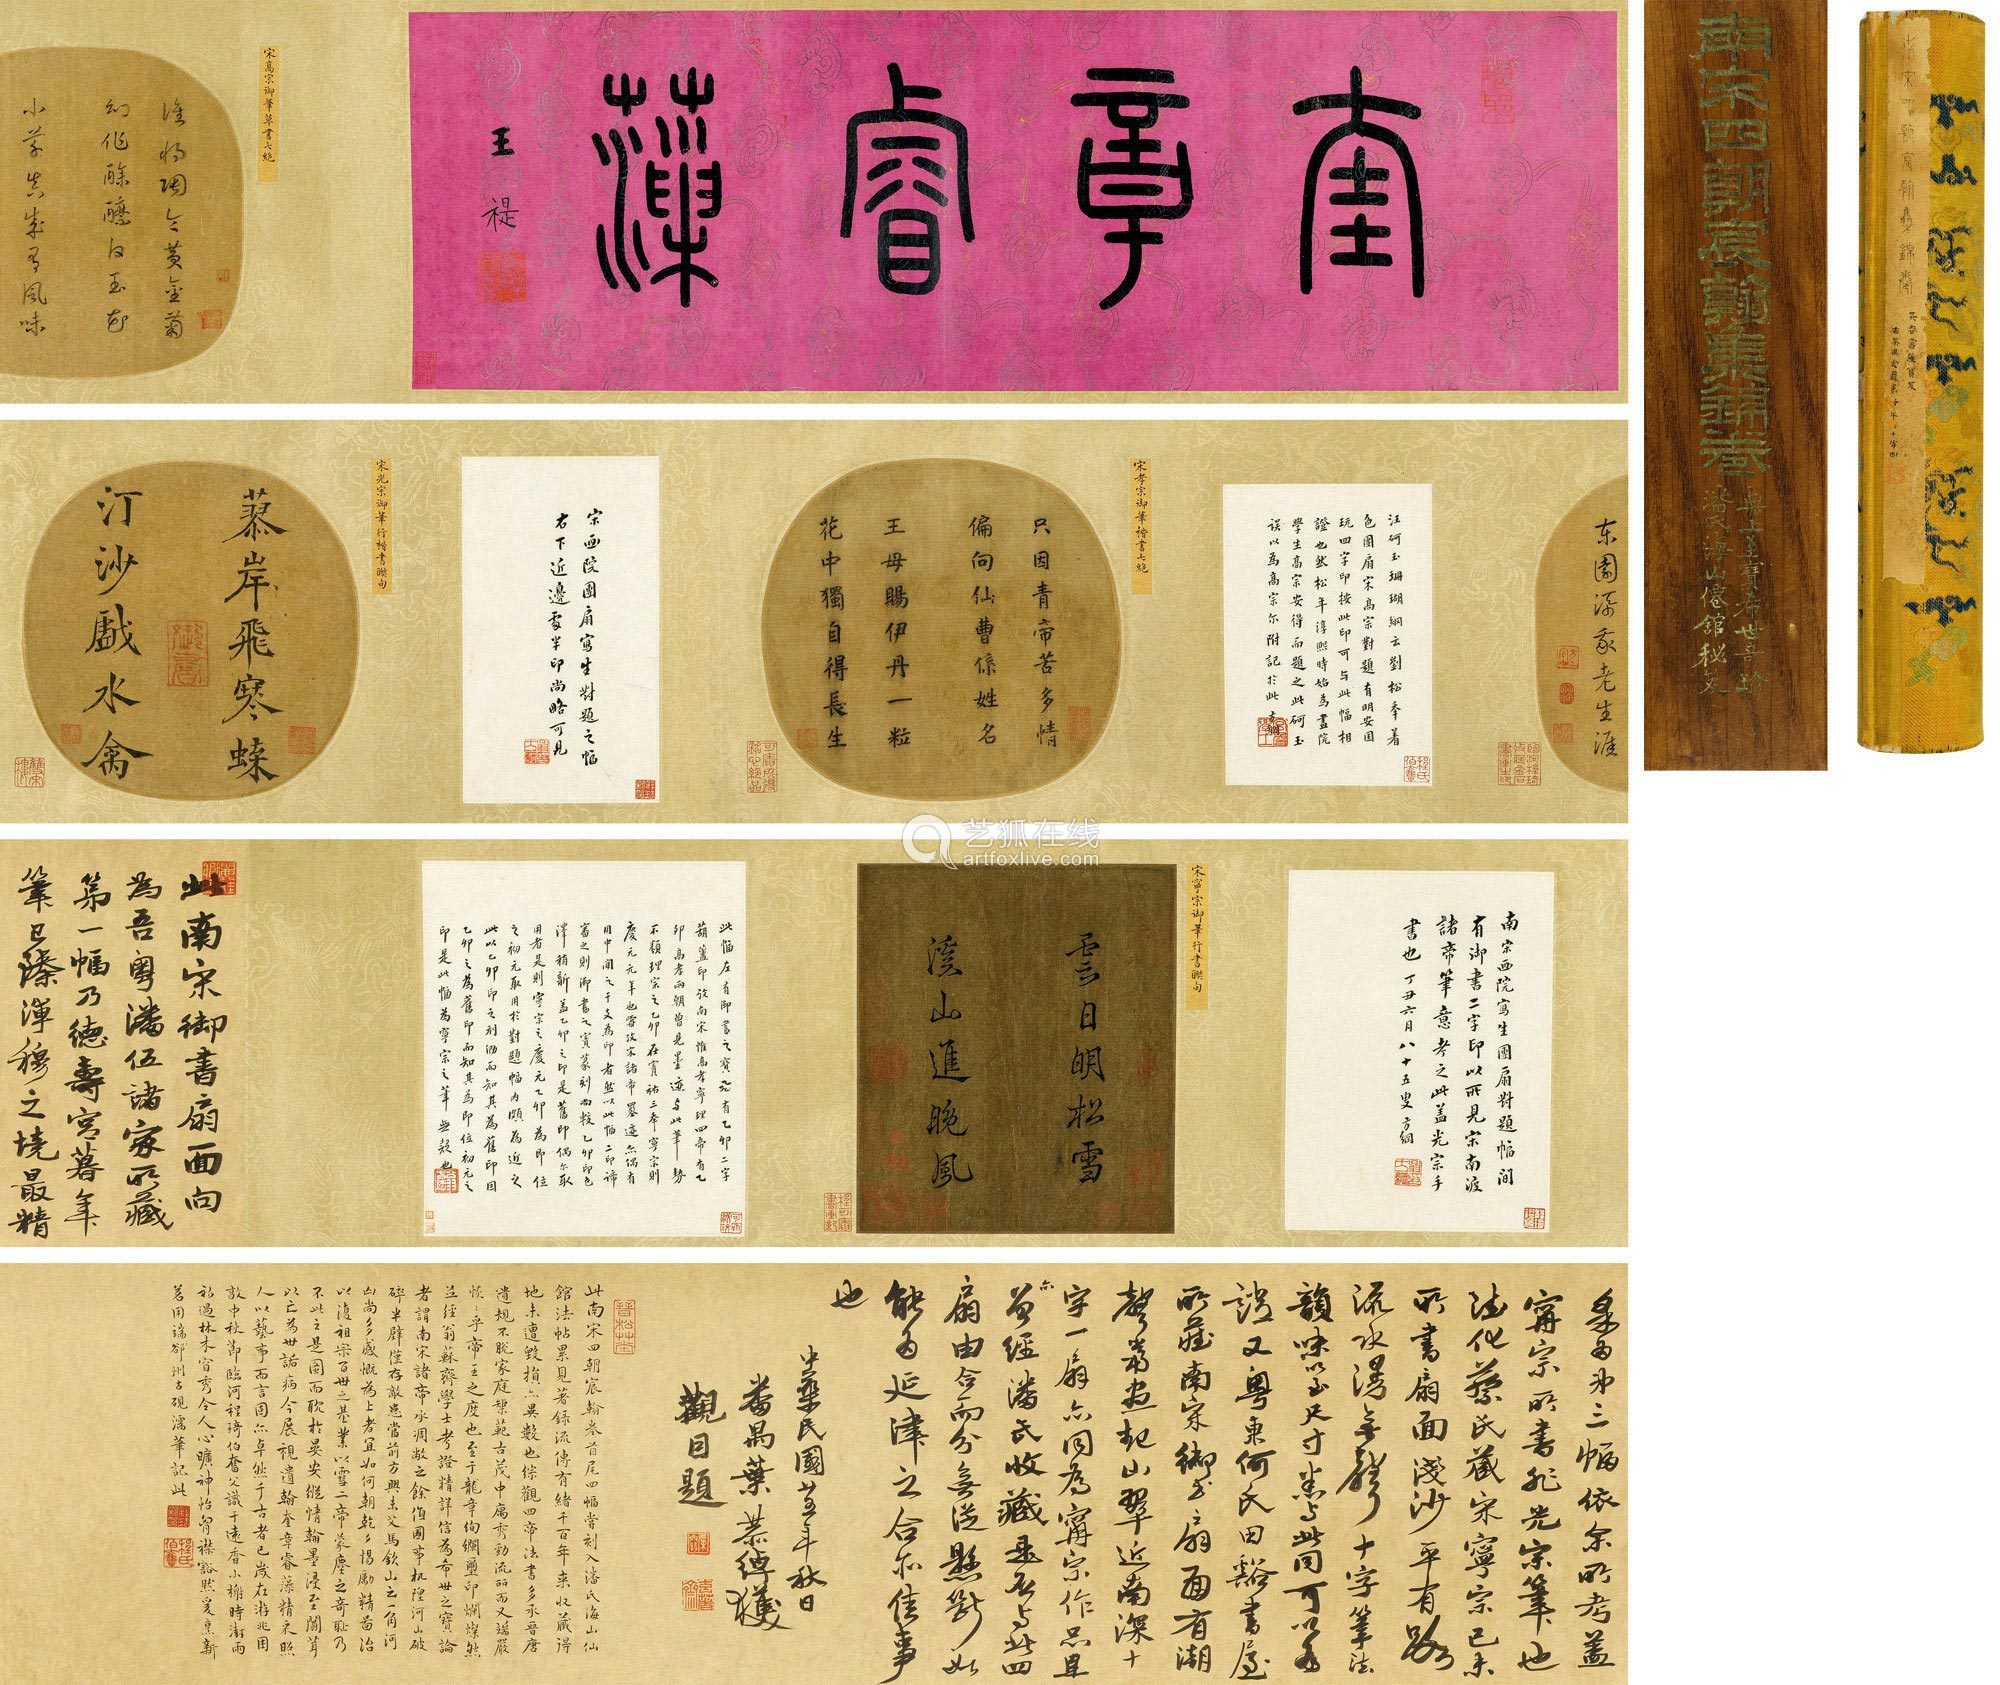 奎章睿藻
王禔
宋高宗御筆草書七絕
誰將陶令黃金菊
幻作酴醾白玉花
小草真成有風味
東園添我老生涯
南宋四朝宸翰集錦卷
潘氏海山僊館秘笈
汪砢玉珊瑚網云劉松年着
色團扇宋高宗對題有明安國
玩四字印按此印可與此幅相
證也然松年淳熙時始為畫院
學生高宗安得而題之此砢玉
误以為高宗尔附記於此方綱
宋孝宗御筆楷書七絕
只因青帝苦多情
偏向仙曹係姓名
王母賜伊丹一粒
花中獨自得長生
宋画院團扇寫生對題之幅
右下近邊處半印尚略可見
宋光宗御筆行楷書聯句
蓼岸飛寒蝶
汀沙戲水禽
南宋画院寫生團扇對題幅間
有御書二字印以所見宋南渡
諸帝筆意考之此蓋光宗手
書也丁丑六月八十五叟方綱
宋寧宗御筆行書聯句
雲日明松雪
溪山進晚風
此幅左有御書之寶元有乙卯二字
葫蘆印攷南宋惟高孝寧理四帝有乙
卯高孝兩朝曾見墨迹与此筆勢
不類理宗之乙卯在寶祐三年寧宗則
慶元元年也嘗攷宋諸帝墨迹亦偶有
用中間之干支為印者然以此幅二印諦
審之則御書之寶篆刻而較乙卯印色
澤稍新蓋乙卯之印是舊印偶尔取
用者是則寧宗之慶元乙卯為即位
之初元取用於對題幅內頗為近之
此以乙卯印之刓泐而知其為舊印因
乙卯之為舊印而知其為即位初元之
印是此幅為寧宗之筆無疑也
此南宋御書扇面向
為吾粵潘伍諸家所藏
第一幅乃德壽宮暮年
筆已臻渾穆之境最精
矣弟三幅依余所考蓋
寗宗所書非光宗筆也
法化蔡氏藏宋寧宗己未
所書扇面淺沙平有路
流水漫無聲十字筆法
韻味以至尺寸悉与此同可以為
證又粤東何氏田谿書屋
所藏南宋御書扇面有湖
聲當晝起山翠近南深十
字一扇亦同為寗宗作品且
亦曾經潘氏收藏最后与此四
扇由合而分無從懸斷如
能為延津之合亦佳事
也
中華民國廿五年秋日
番禺葉恭綽獲
觀因題
此南宋四朝宸翰卷首尾四幅嘗刻入潘氏海山仙
館法帖累見著錄流傳有緒千百年來收藏得
地未遭毀損亦異數也综觀四帝法書多承晉唐
遺規不脱家庭楷範古茂中厲秀勁流丽而又端嚴
恢恢乎帝王之度也至于龍章绚斓璽印斓燦然
並經翁蘇齋學士考證精詳信為希世之寶論
者謂南宋諸帝承凋敝之餘值國事杌隉河山破
碎半壁僅存敵患當前方興未艾馬欽山之一角河
山尚多感慨為上者宜如何朝乾夕惕勵精苗治
以復祖宗百世之基業以雪二帝蒙塵之奇恥乃
不此之是圖而耽於晏安縱情翰墨浸至闒茸
以亡為世詬病今展視遺翰奎章睿藻精采照
人以藝事而言固亦卓然千古者已歲在游兆困
敦中秋節臨河程琦伯奮父識于遠香小榭時澍雨
初過林木官秀令人心曠神怡胷襟豁然爰皇新
茗用端郄州古硯濡華記此
艺狐在线
artfoxlive.com